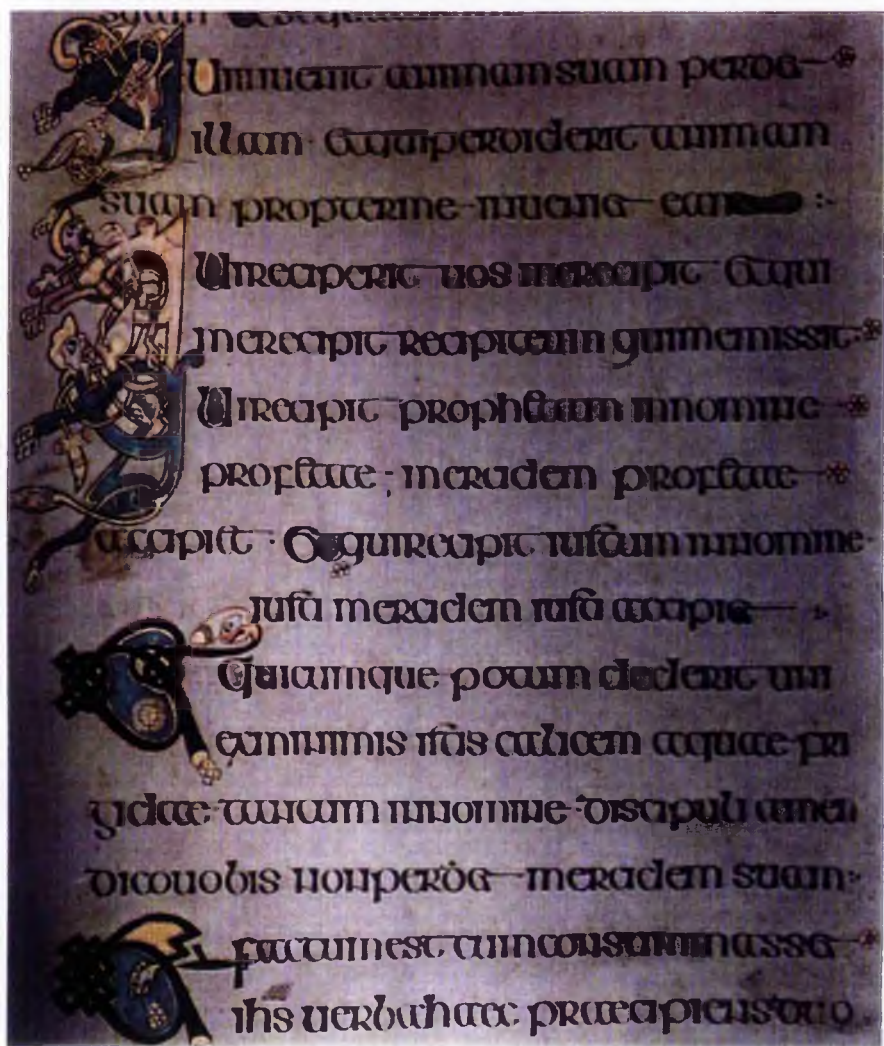 suam & sequitur
Qui inuenit animam suam perdet
illam · Et qui perdiderit animam
suam propter me inueniet eam :·
Qui reciperit uos me recipit Et qui
me recipit recipit eum qui me missit :
Qui recipit prophetam in nomine
profetae · mercidem profetae
accipiet · Et qui recipit iustum in nomine
iusti mercidem iusti accipiet :
Et quicumque potum dederit uni
ex minimis istis calicem aquae fri
gidae tantum in nomine discipuli amen
dico uobis non perdet mercidem suam :
Et factum est cum consummasset
ihs uerba haec praecipiens duo